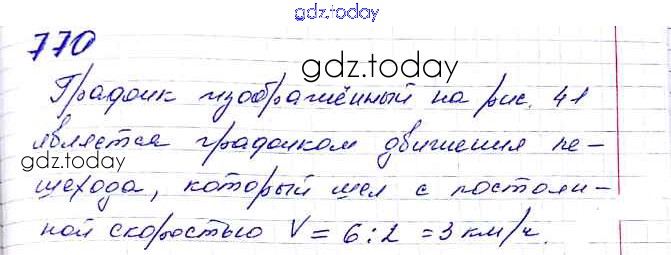 gdz.today
770
gdz.today
График изображённый на рис. 41
является графиком движения пе-
gdz.today
шехода, который шел с постоян-
ной скоростью V = 6 : 2 = 3 км/ч.